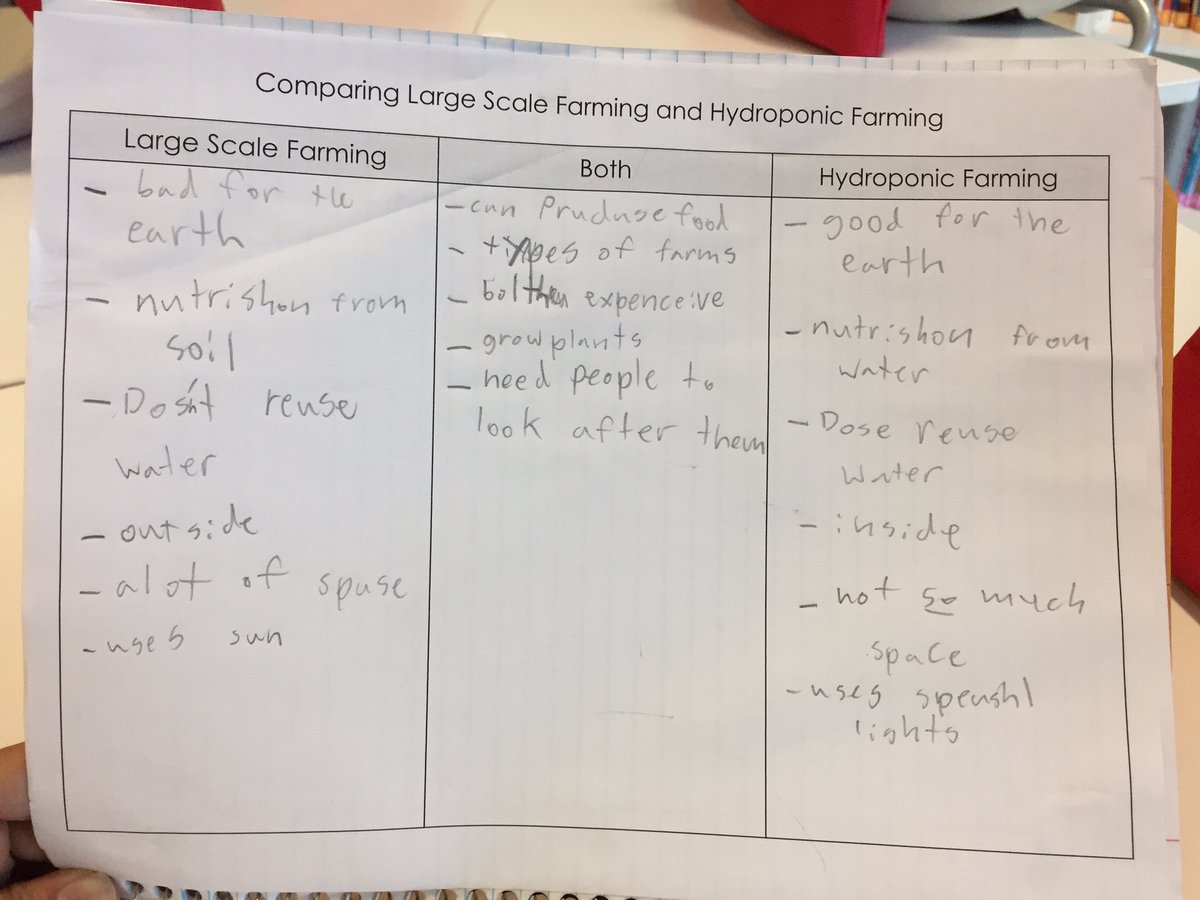 Comparing Large Scale Farming and Hydroponic Farming
Large Scale Farming
- bad for the
earth
- nutrishon from
soil
- Dosn't reuse
water
- outside
- alot of spuse
- uses sun
Both
- can Produse food
- types of farms
- expenceive
- grow plants
- need people to
look after them
Hydroponic Farming
- good for the
earth
- nutrishon from
water
- Dose reuse
water
- inside
- not so much
space
- uses speushl
lights